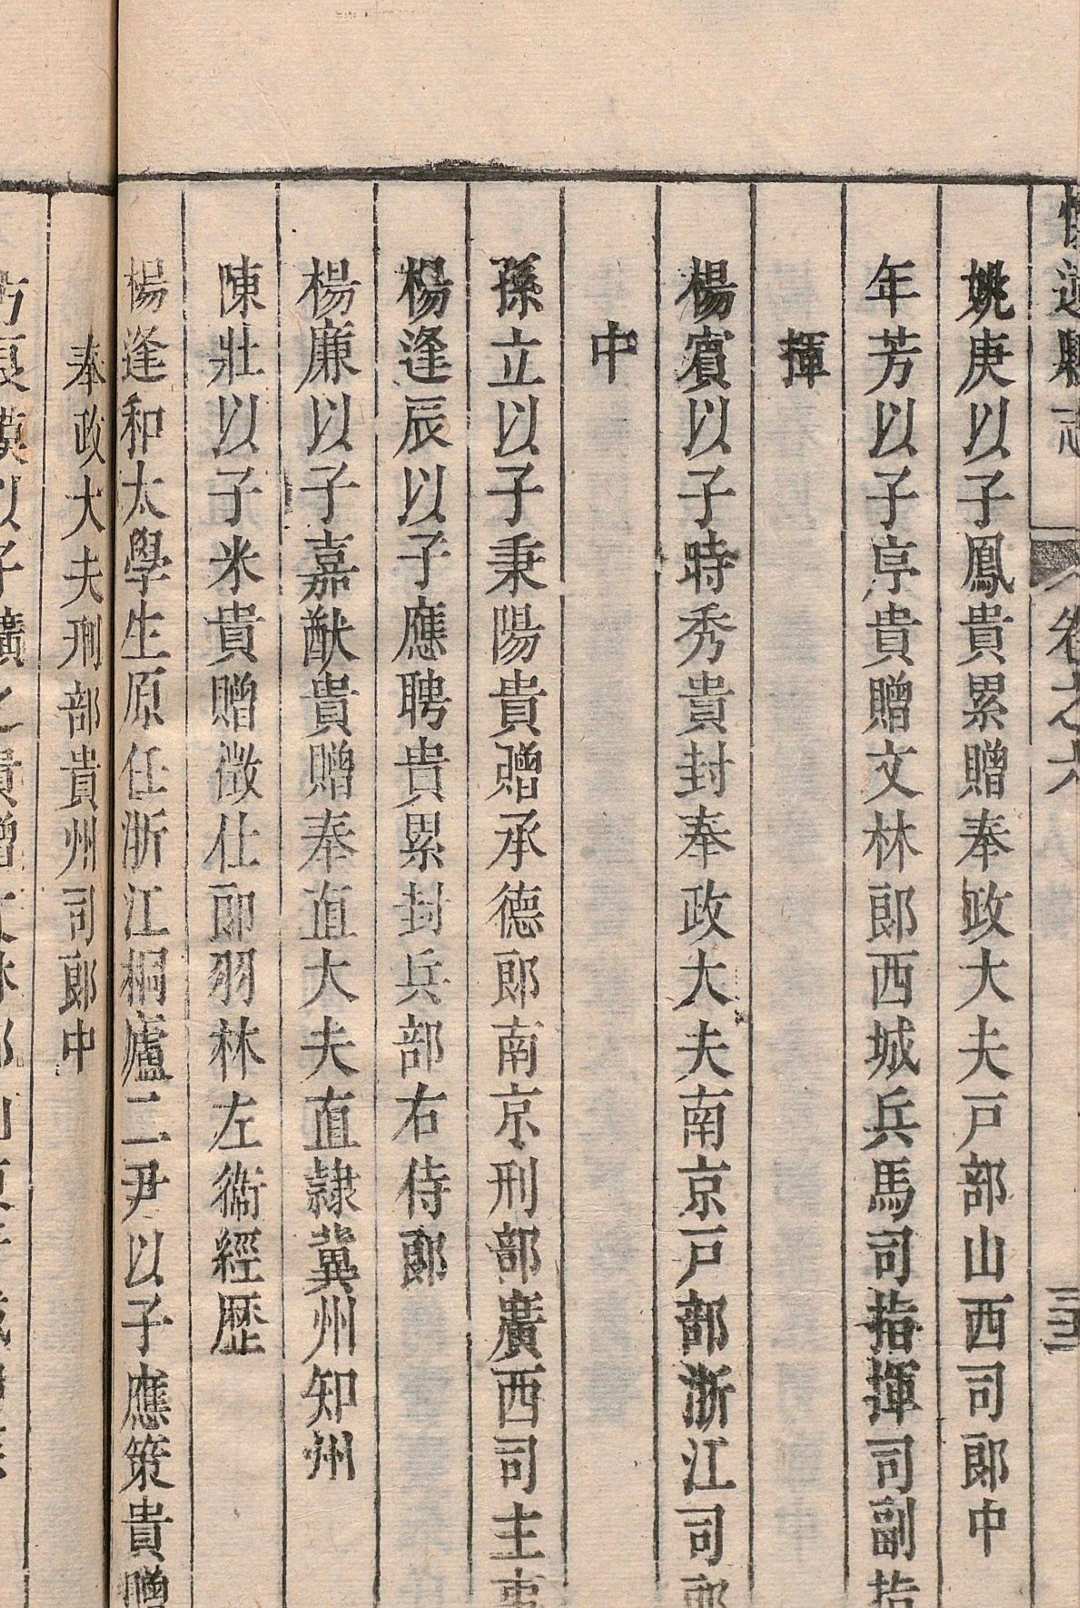 懷遠縣志 卷之六
姚庚以子鳳貴累贈奉政大夫戶部山西司郎中
年芳以子亨貴贈文林郎西城兵馬司指揮司副指
揮
楊賓以子時秀貴封奉政大夫南京戶部浙江司郎
中
孫立以子秉陽貴贈承德郎南京刑部廣西司主事
楊逢辰以子應聘貴累封兵部右侍郎
楊廉以子嘉猷貴贈奉直大夫直隸冀州知州
陳壯以子米貴贈徵仕郎羽林左衞經歷
楊逢和太學生原任浙江桐廬二尹以子應策貴贈
奉政大夫刑部貴州司郎中